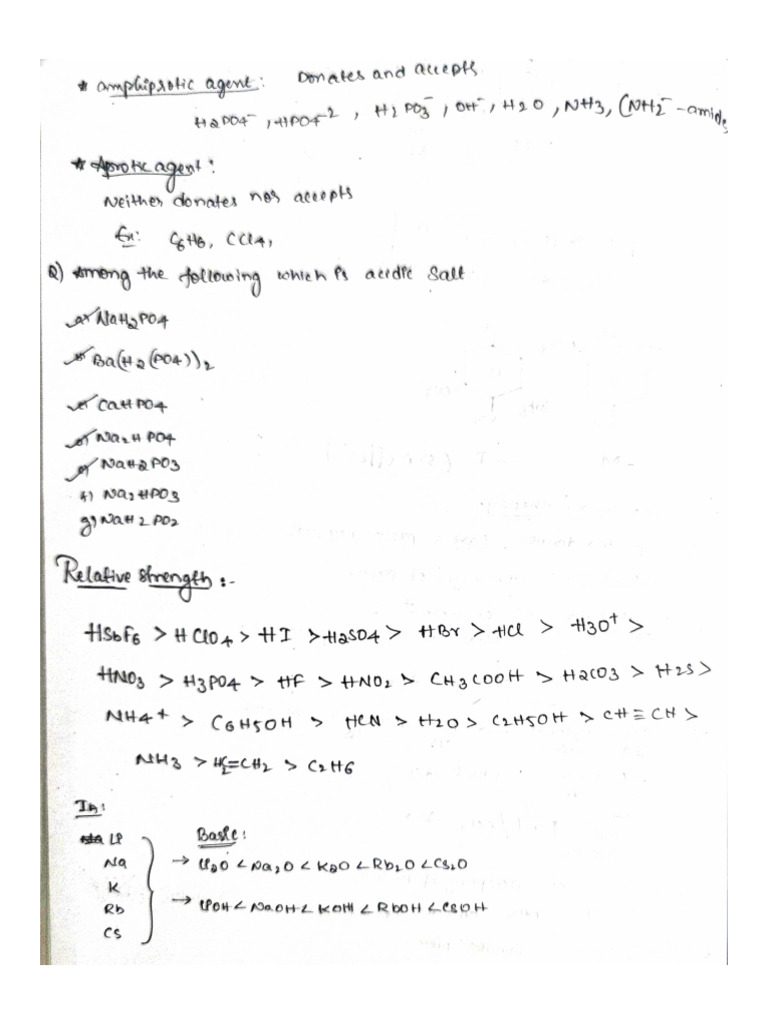 * amphiprotic agent: Donates and accepts
H2PO4⁻, HPO4⁻², H2PO3⁻, OH⁻, H2O, NH3, (NH2⁻ - amide
* Aprotic agent:
Neither donates nor accepts
Ex: C6H6, CCl4,
Q) Among the following which is acidic salt
a) NaH2PO4
b) Ba(H2(PO4))2
c) CaHPO4
d) Na2HPO4
e) NaH2PO3
f) Na2HPO3
g) NaH2PO2
Relative strength :-
HSbF6 > HClO4 > HI > H2SO4 > HBr > HCl > H3O⁺ >
HNO3 > H3PO4 > HF > HNO2 > CH3COOH > H2CO3 > H2S >
NH4⁺ > C6H5OH > HCN > H2O > C2H5OH > CH≡CH >
NH3 > H2C=CH2 > C2H6
IA:
Li Basic:
Na → Li2O < Na2O < K2O < Rb2O < Cs2O
K
Rb → LiOH < NaOH < KOH < RbOH < CsOH
Cs